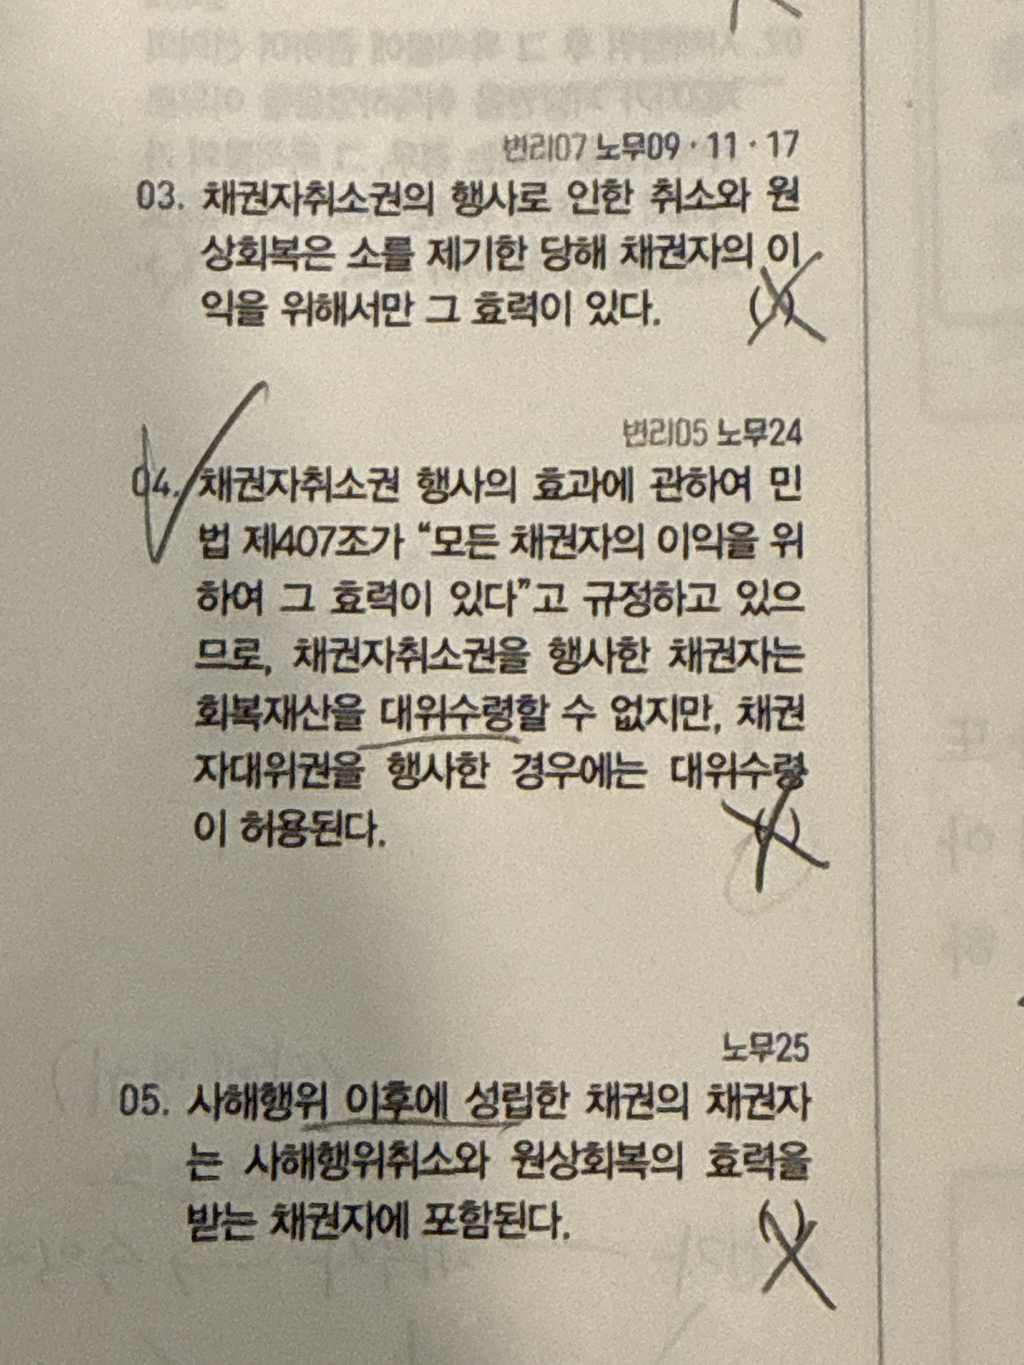 변리07 노무09·11·17
03. 채권자취소권의 행사로 인한 취소와 원
상회복은 소를 제기한 당해 채권자의 이
익을 위해서만 그 효력이 있다. ( )
변리05 노무24
04. 채권자취소권 행사의 효과에 관하여 민
법 제407조가 “모든 채권자의 이익을 위
하여 그 효력이 있다”고 규정하고 있으
므로, 채권자취소권을 행사한 채권자는
회복재산을 대위수령할 수 없지만, 채권
자대위권을 행사한 경우에는 대위수령
이 허용된다. ( )
노무25
05. 사해행위 이후에 성립한 채권의 채권자
는 사해행위취소와 원상회복의 효력을
받는 채권자에 포함된다. ( )